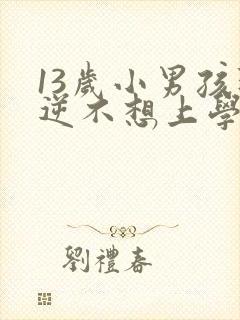 13歲小男孩
逆不想上學
劉禮春